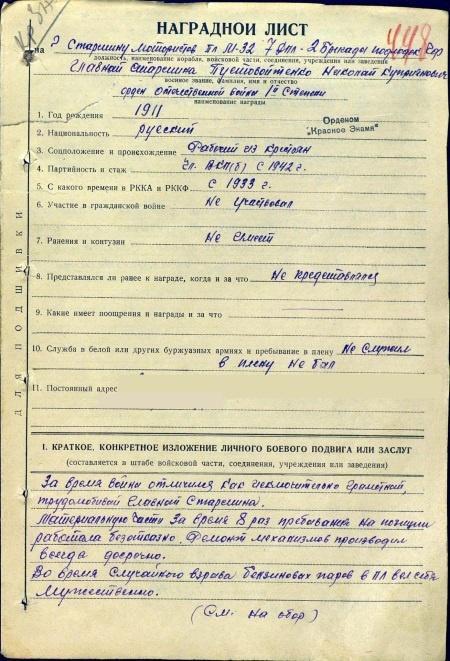 448
НАГРАДНОЙ ЛИСТ
на Старшину Мотористов пл М-32 7 Дпл - 2 Бригады подлодок
должность, наименование корабля, войсковой части, соединения, учреждения или заведения
Главной Старшина Пустовойтенко Николай Куприянович
военное звание, фамилия, имя и отчество
орден Отечественной войны 1й Степени
наименование награды
Орденом
"Красное Знамя"
1. Год рождения 1911
2. Национальность русский
3. Соцположение и происхождение Рабочий из Крестьян
4. Партийность и стаж чл. ВКП(б) с 1942 г.
5. С какого времени в РККА и РККФ с 1933 г.
6. Участие в гражданской войне Не Участвовал
7. Ранения и контузии Не Имеет
8. Представлялся ли ранее к награде, когда и за что Не представлялся
9. Какие имеет поощрения и награды и за что
10. Служба в белой или других буржуазных армиях и пребывание в плену Не Служил
в плену Не был
11. Постоянный адрес
ДЛЯ ПОДШИВКИ
I. КРАТКОЕ, КОНКРЕТНОЕ ИЗЛОЖЕНИЕ ЛИЧНОГО БОЕВОГО ПОДВИГА ИЛИ ЗАСЛУГ
(составляется в штабе войсковой части, соединения, учреждения или заведения)
За время войны отличился как исключительно грамотной,
трудолюбивой Главной Старшина.
Материальную часть За время 8 раз пребывания на позиции
работала безотказно. Ремонт механизмов производил
всегда досрочно.
Во время Случайного взрыва бензиновых паров в ПЛ вел себя
Мужественно.
(См. на обор)